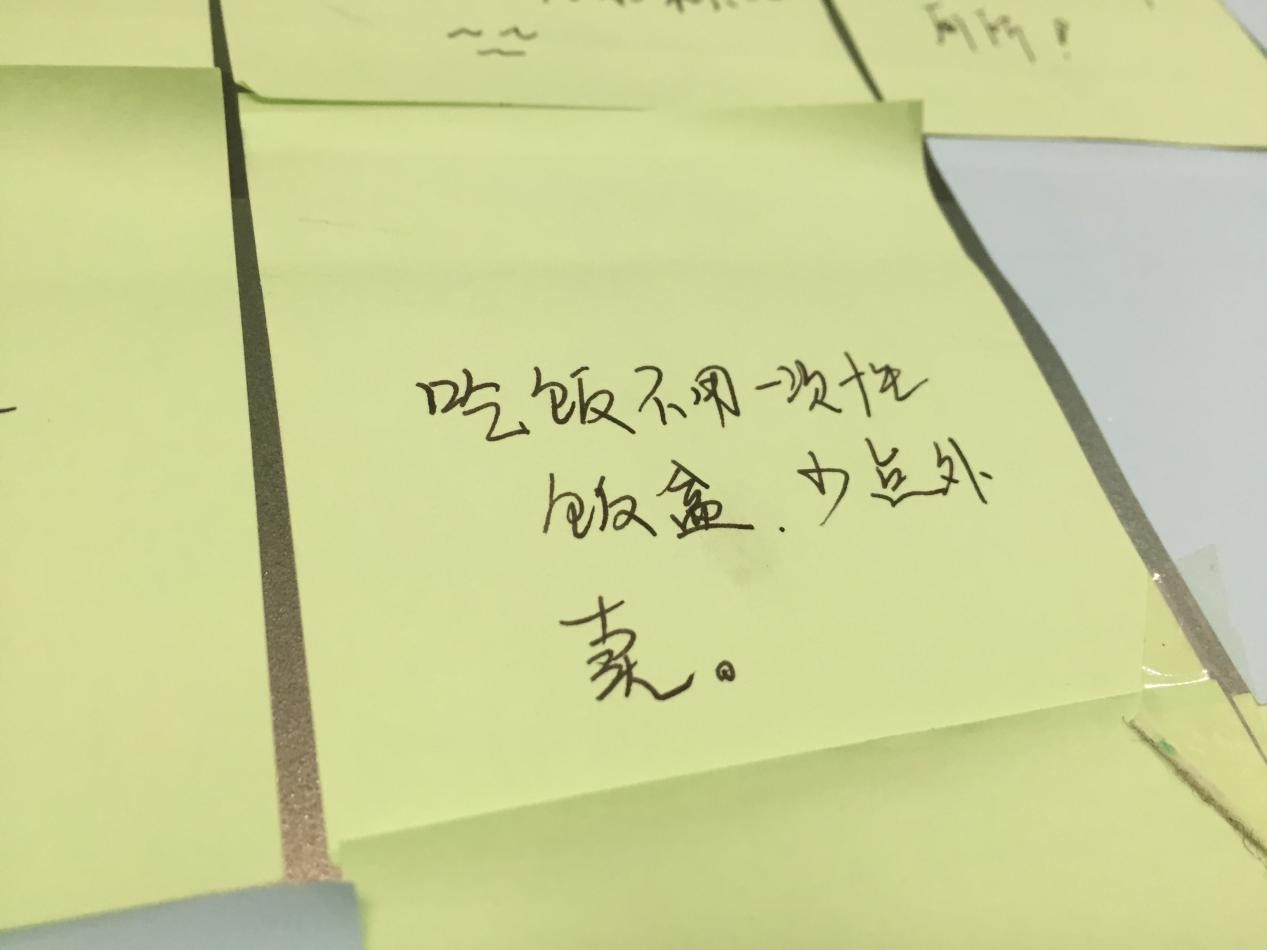 吃饭不用一次性
饭盒.少点外
卖。